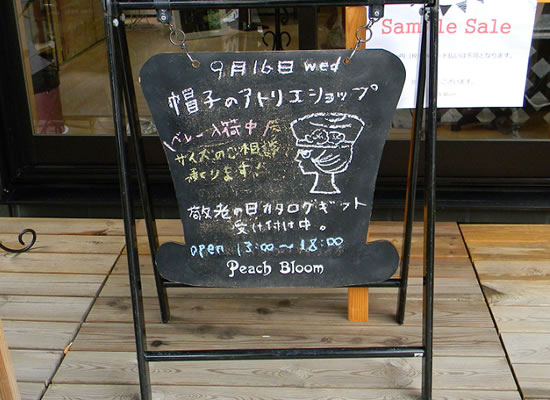 Sample Sale
9月16日 wed
帽子のアトリエショップ
ベレー入荷中
サイズのご相談
承ります!
敬老の日カタログギフト
受け付け中。
open 13:00〜18:00
Peach Bloom